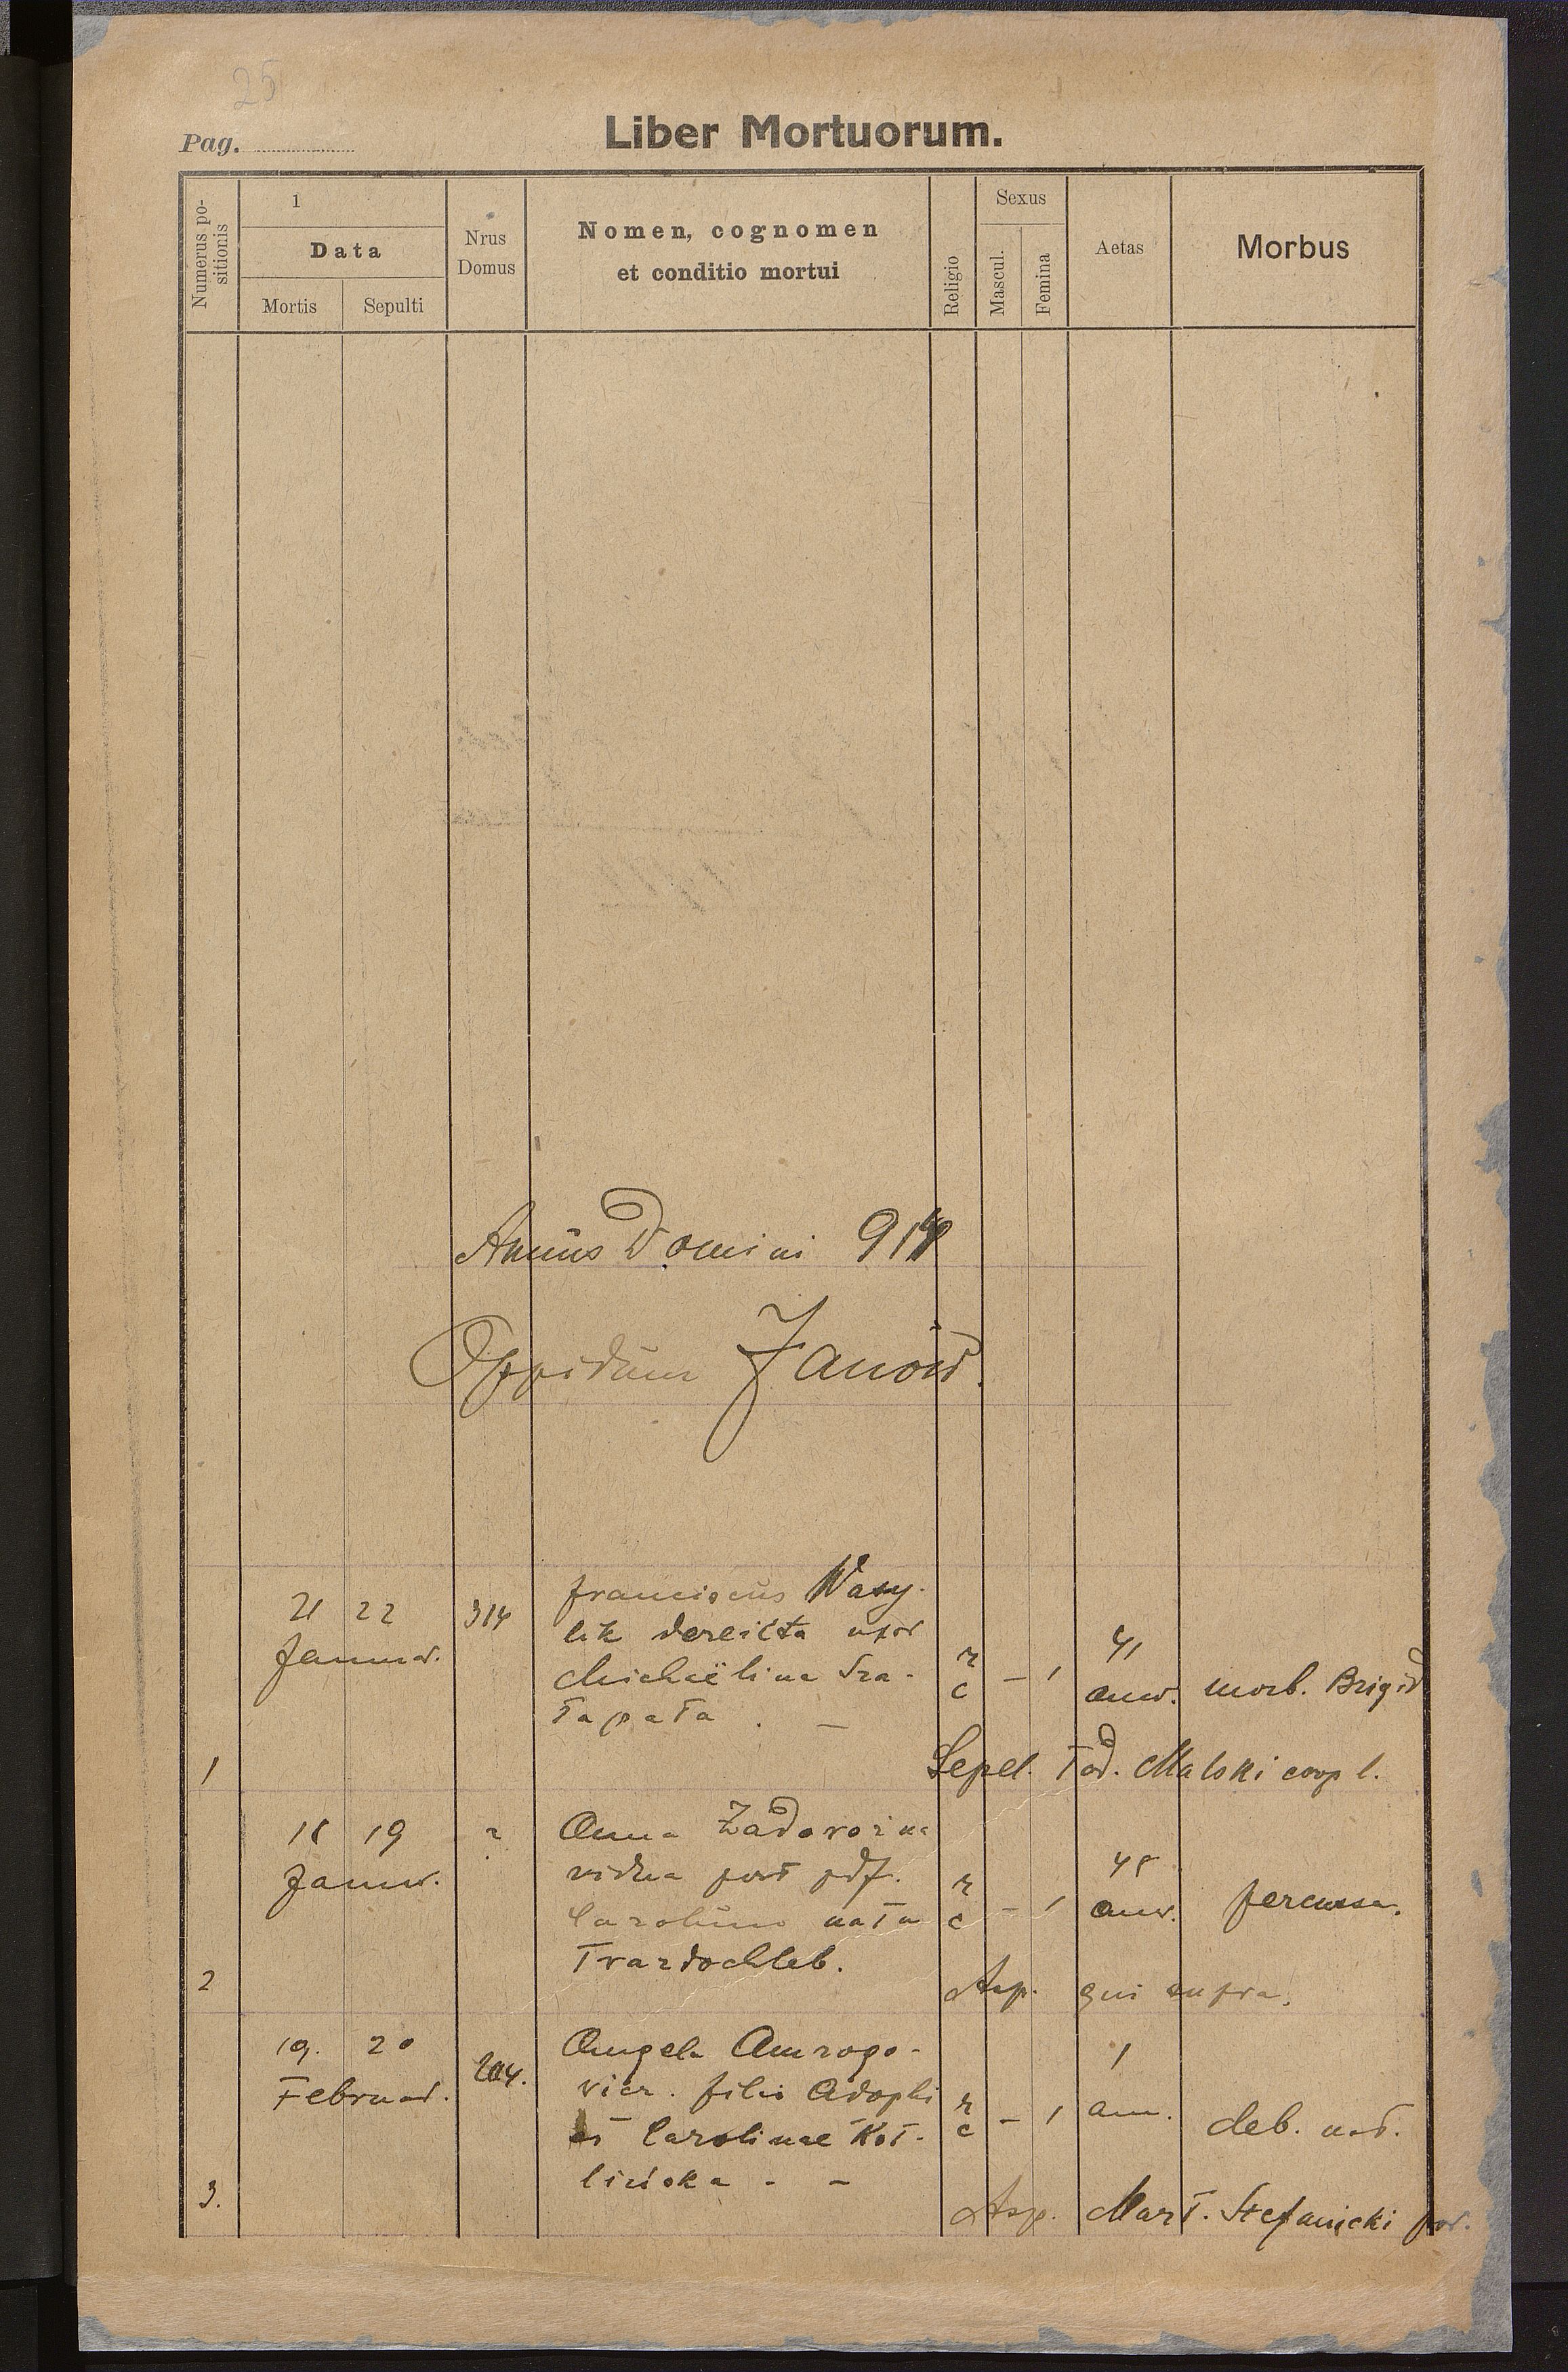 25
Pag.
Liber Mortuorum.
Numerus po-
sitionis
1
Data
Mortis Sepulti
Nrus
Domus
Nomen, cognomen
et conditio mortui
Religio
Sexus
Mascul.
Femina
Aetas
Morbus
Annus Domini 91
Oppidum Janów.
1
21 22
Januar.
314
Franciscus Wasy-
lik derelicta uxor
Michaëlina
r
c
- 1
41
ann.
morb. Brigid
Sepel. Tad. Malski coop l.
2
18 19
Januar.
?
Anna Zadorozna
vidua post pdf.
Carolum nata
Tvardochleb.
r
c
- 1
48
ann.
percussa.
Asp. qui supra.
3.
19. 20
Februar.
204.
Angela Amrogo-
vicz. filia Adophi
et Carolinae Kot-
lińska - -
r
c
- 1
1
ann.
deb. nat.
Asp. Mart. Stefanicki par.